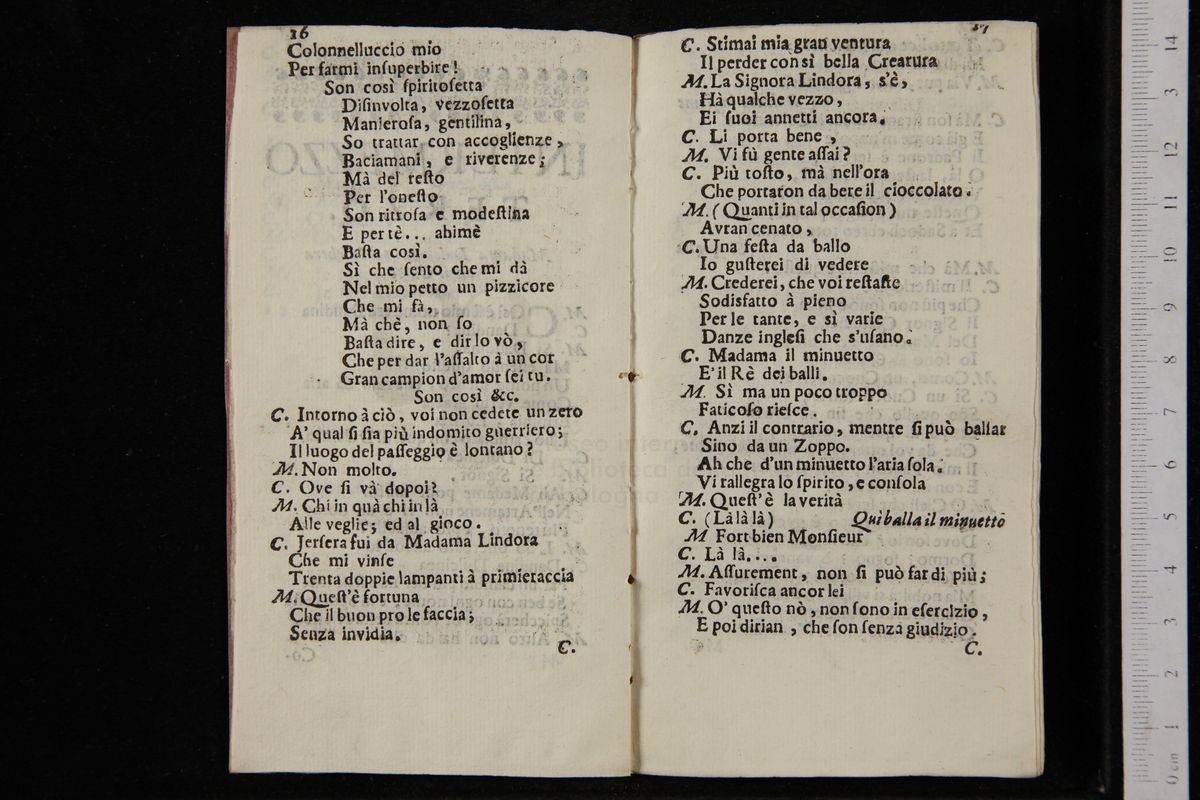 16
Colonnelluccio mio
Per farmi inſuperbire!
Son così ſpiritoſetta
Diſinvolta, vezzoſetta
Manieroſa, gentilina,
So trattar con accoglienze,
Baciamani, e riverenze;
Mà del reſto
Per l'oneſto
Son ritroſa e modeſtina
E per tè... ahimè
Baſta così.
Sì che ſento che mi dà
Nel mio petto un pizzicore
Che mi fà,
Mà chè, non ſo
Baſta dire, e dir lo vò,
Che per dar l'aſſalto à un cor
Gran campion d'amor ſei tu.
Son così &c.
C. Intorno à ciò, voi non cedete un zero
A' qual ſi ſia più indomito guerriero;
Il luogo del paſſeggio è lontano?
M. Non molto.
C. Ove ſi và dopoi?
M. Chi in quà chi in là
Alle veglie; ed al gioco.
C. Jerſera fui da Madama Lindora
Che mi vinſe
Trenta doppie lampanti à primieraccia
M. Queſt'è fortuna
Che il buon pro le faccia;
Senza invidia.
C.
17
C. Stimai mia gran ventura
Il perder con sì bella Creatura
M. La Signora Lindora, s'è,
Hà qualche vezzo,
Ei ſuoi annetti ancora.
C. Li porta bene,
M. Vi fù gente aſſai?
C. Più toſto, mà nell'ora
Che portaron da bere il cioccolato.
M. (Quanti in tal occaſion)
Avran cenato,
C. Una feſta da ballo
Io guſterei di vedere
M. Crederei, che voi reſtaſte
Sodisfatto à pieno
Per le tante, e sì varie
Danze ingleſi che s'uſano.
C. Madama il minuetto
E' il Rè dei balli.
M. Sì ma un poco troppo
Faticoſo rieſce.
C. Anzi il contrario, mentre ſi può ballar
Sino da un Zoppo.
Ah che d'un minuetto l'aria ſola.
Vi rallegra lo ſpirito, e conſola
M. Queſt'è la verità
C. (Là là là) Quì balla il minuetto
M Fort bien Monſieur
C. Là là....
M. Aſſurement, non ſi può far di più;
C. Favoriſca ancor lei
M. O' queſto nò, non ſono in eſercizio,
E poi dirian, che ſon ſenza giudizio.
C.